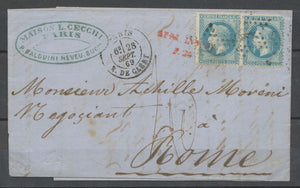 MAISON L. CECCHI
PARIS
P. BALDUINI NEVEU, SUCC.
PARIS
28
SEPT.
69
R. DE CLERY
Monsieur Achille Moréni
Négociant
à
Rome